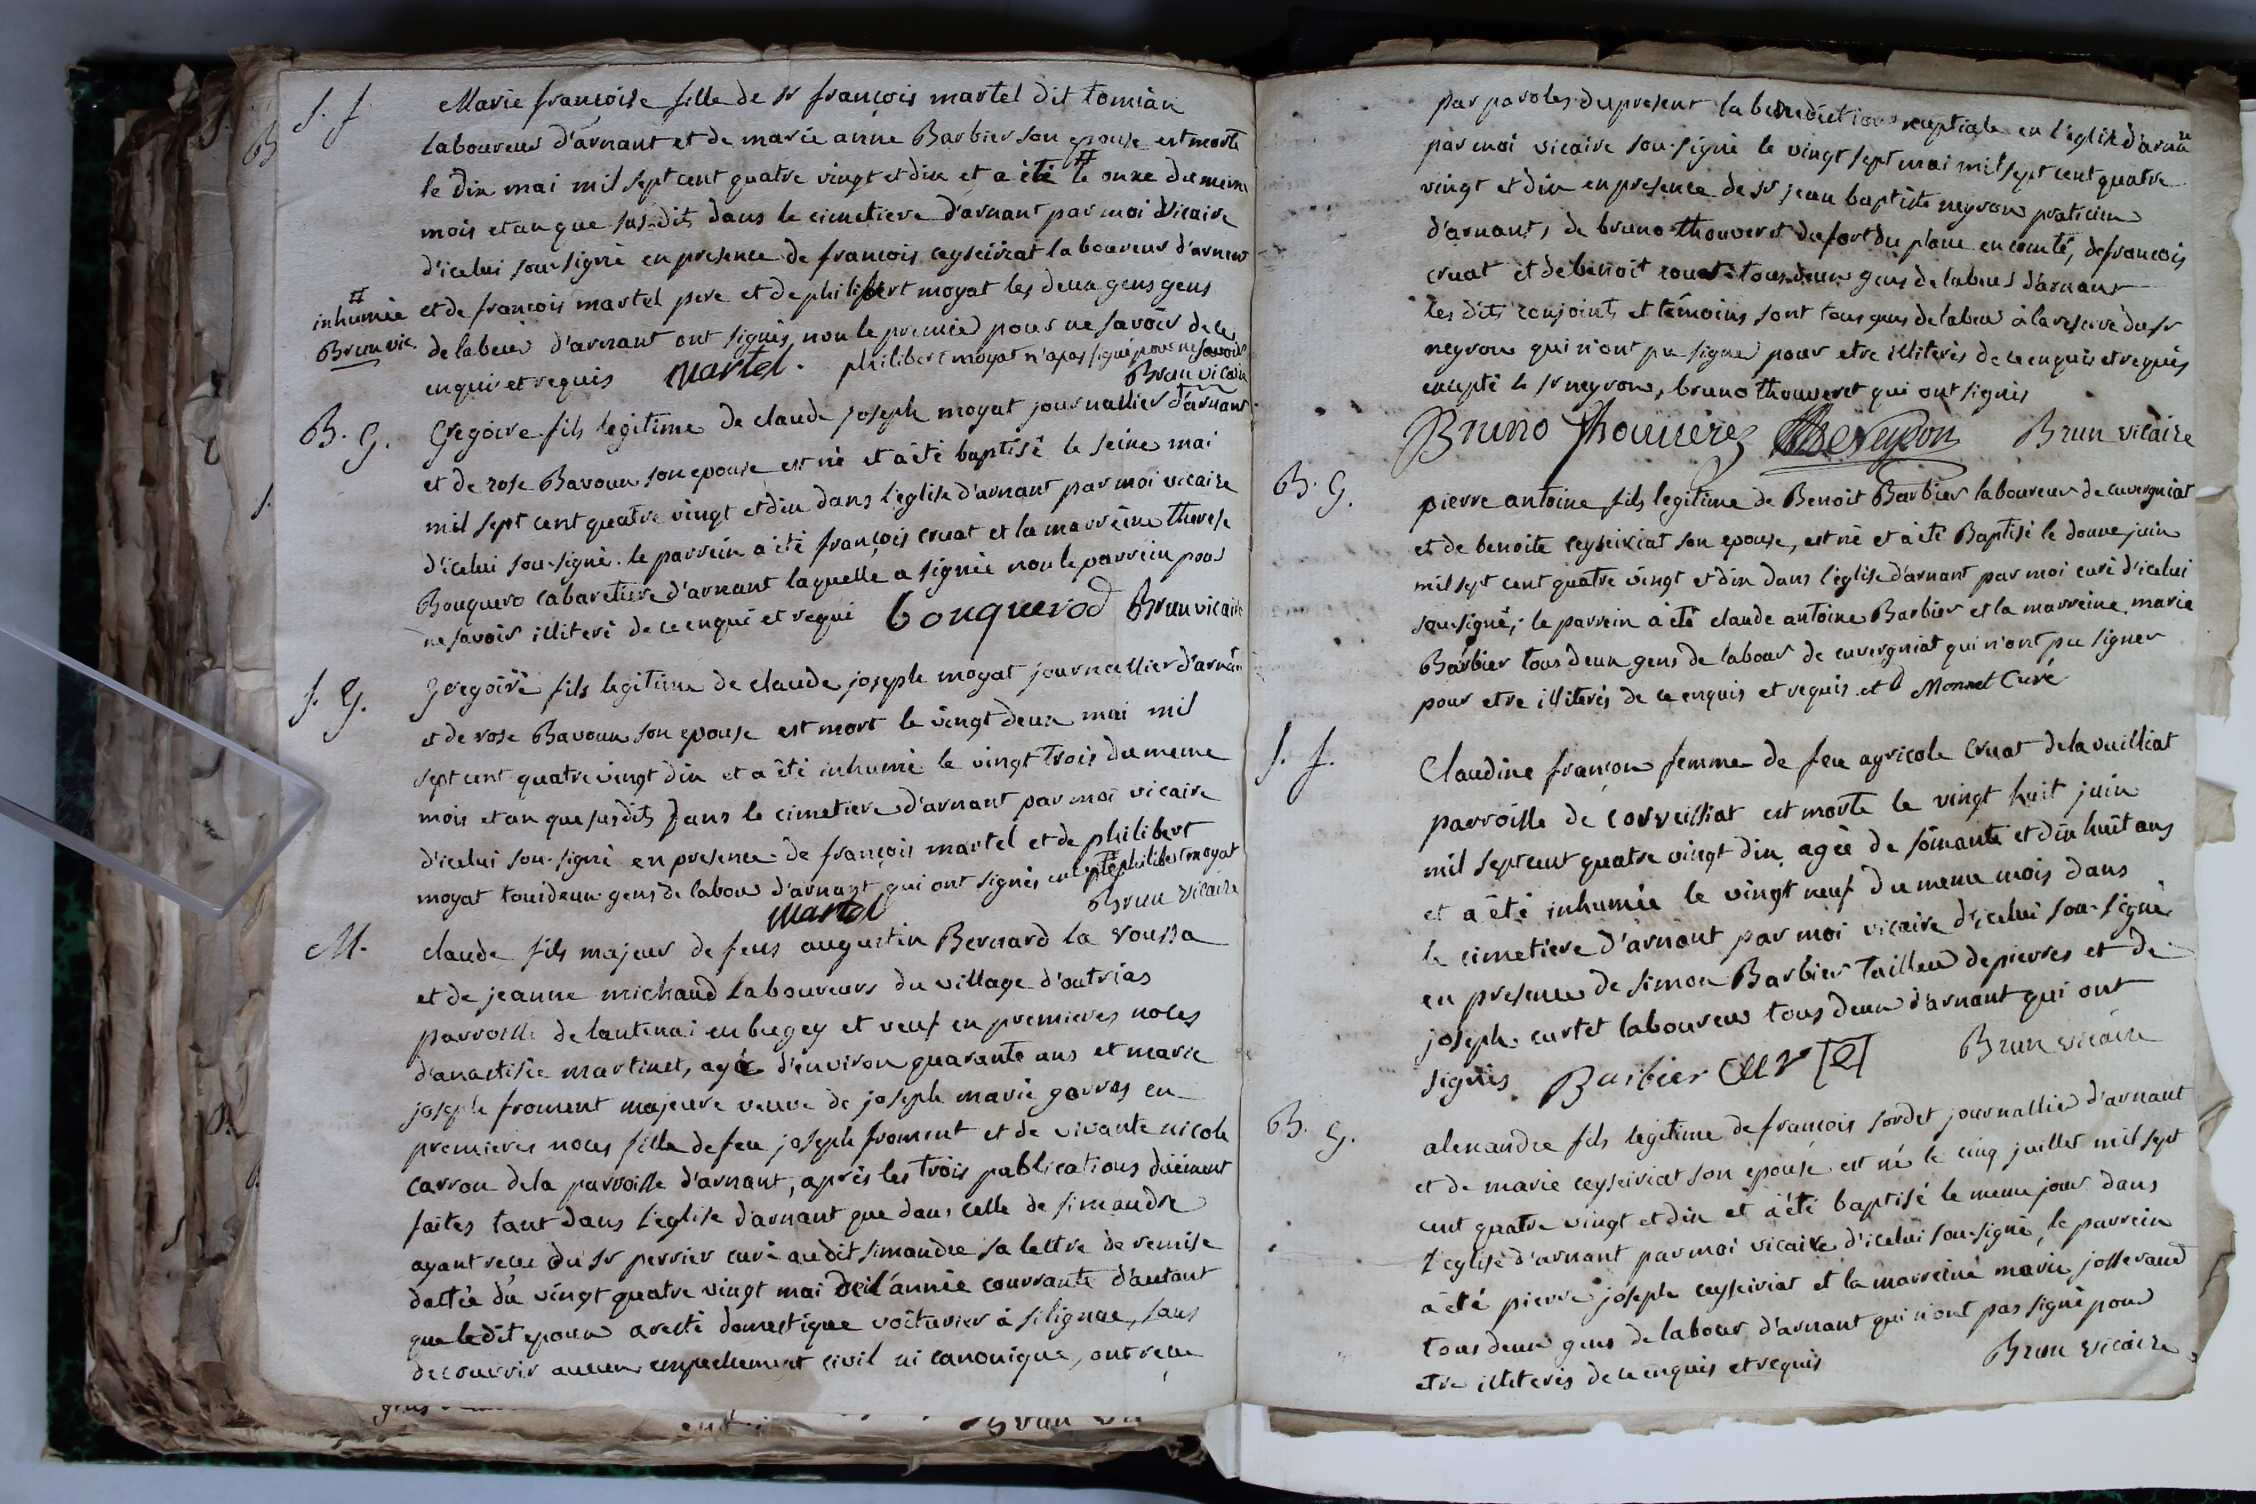 S. f. Marie françoise fille de sr françois martel dit tomian
laboureur d'arnant et de marie anne Barbier son epouse est morte
le dix mai mil sept cent quatre vingt et dix et a été # le onze du meme
mois et an que susdits dans le cimetiere d'arnant par moi vicaire
d'icelui sou-signé en presence de françois ceyseiriat laboureur d'arnant
et de françois martel pere et de philibert moyat les deux gens gens
# inhumée
Brun vic.
de labeur d'arnant ont signés, non le premier pour ne savoir de ce
enqui et requis martel. philibert moyat n'a pas signé pour ne savoir
Brun vicaire
B. G. Gregoire fils legitime de claude joseph moyat journallier d'arnant
et de rose Bavoux son epouse est né et a été baptisé le seize mai
mil sept cent quatre vingt et dix dans l'eglise d'arnant par moi vicaire
d'icelui sou-signé. le parrein a été françois cruat et la marreine therese
Bouquero cabaretiere d'arnant laquelle a signée non le parrein pour
ne savoir illiteré de ce enqui et requi bouquerod Brun vicaire
S. G. Gregoire fils legitime de claude joseph moyat journallier d'arnant
et de rose Bavoux son epouse est mort le vingt deux mai mil
sept cent quatre vingt dix et a été inhumé le vingt trois du meme
mois et an que susdits dans le cimetiere d'arnant par moi vicaire
d'icelui sou-signé en presence de françois martel et de philibert
moyat tous deux gens de labour d'arnant qui ont signés excepté philibert moyat
martel Brun vicaire
M. claude fils majeur de feus augustin Bernard la roussa
et de jeanne michaud laboureurs du village d'outrias
parroisse de lantenai en bugey et veuf en premieres noces
martinet, agé d'environ quarante ans et marie
joseph froment majeure veuve de joseph marie en
premieres noces fille de feu joseph froment et de vivante nicole
carron de la parroisse d'arnant, après les trois publications düement
faites tant dans l'eglise d'arnant que dans celle de simandre
ayant recu du sr perrier curé audit simandre sa lettre de remise
dattée du vingt quatre vingt mai de l'année courrante d'autant
que le dit epoux a resté domestique voiturier à silignac, sans
decouvrir aucun empechement civil ni canonique, ont recu
par paroles du present la benediction nuptiale en l'eglise d'arnant
par moi vicaire sou-signé le vingt sept mai mil sept cent quatre
vingt et dix en presence de sr jean baptiste neyron praticien
d'arnant, de bruno thouveret du fort du plane en comté, de francois
cruat et de benoit tous deux gens de labeur d'arnant
les dits conjoints et témoins sont tous gens de labeur à la reserve du sr
neyron qui n'ont pu signer pour etre illiterés de ce enquis et requis
excepté le sr neyron, bruno thouveret qui ont signés
Bruno Brun vicaire
B. G. pierre antoine fils legitime de Benoit Barbier laboureur de cuvergniat
et de benoite ceyseiriat son epouse, est né et a été Baptisé le douze juin
mil sept cent quatre vingt et dix dans l'eglise d'arnant par moi curé d'icelui
sou-signé; le parrein a été claude antoine Barbier et la marreine marie
Barbier tous deux gens de labour de cuvergniat qui n'ont pu signer
pour etre illiterés de ce enquis et requis. et Monnet Curé
S. f. Claudine françon femme de feu agricole cruat de la vuilliat
parroisse de corveissiat est morte le vingt huit juin
mil sept cent quatre vingt dix, agée de soixante et dix huit ans
et a été inhumée le vingt neuf du meme mois dans
le cimetiere d'arnant par moi vicaire d'icelui sou-signé
en presence de simon Barbier tailleur de pierres et de
joseph curtet laboureur tous deux d'arnant qui ont
signés Barbier Brun vicaire
B. G. alexandre fils legitime de françois sordet journallier d'arnant
et de marie ceyseiriat son epouse est né le cinq juillet mil sept
cent quatre vingt et dix et a été baptisé le meme jour dans
l'eglise d'arnant par moi vicaire d'icelui sou-signé, le parrein
a été pierre joseph ceyseiriat et la marreine marie josserand
tous deux gens de labour d'arnant qui n'ont pas signé pour
etre illiterés de ce enquis et requis Brun vicaire